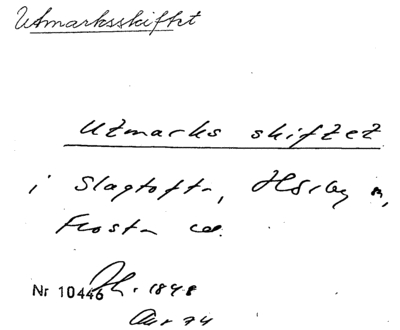 Utmarksskiftet
Utmarks skiftet
i Slagtofta, Hörby n,
Frosta
Nr 10446 1848
74